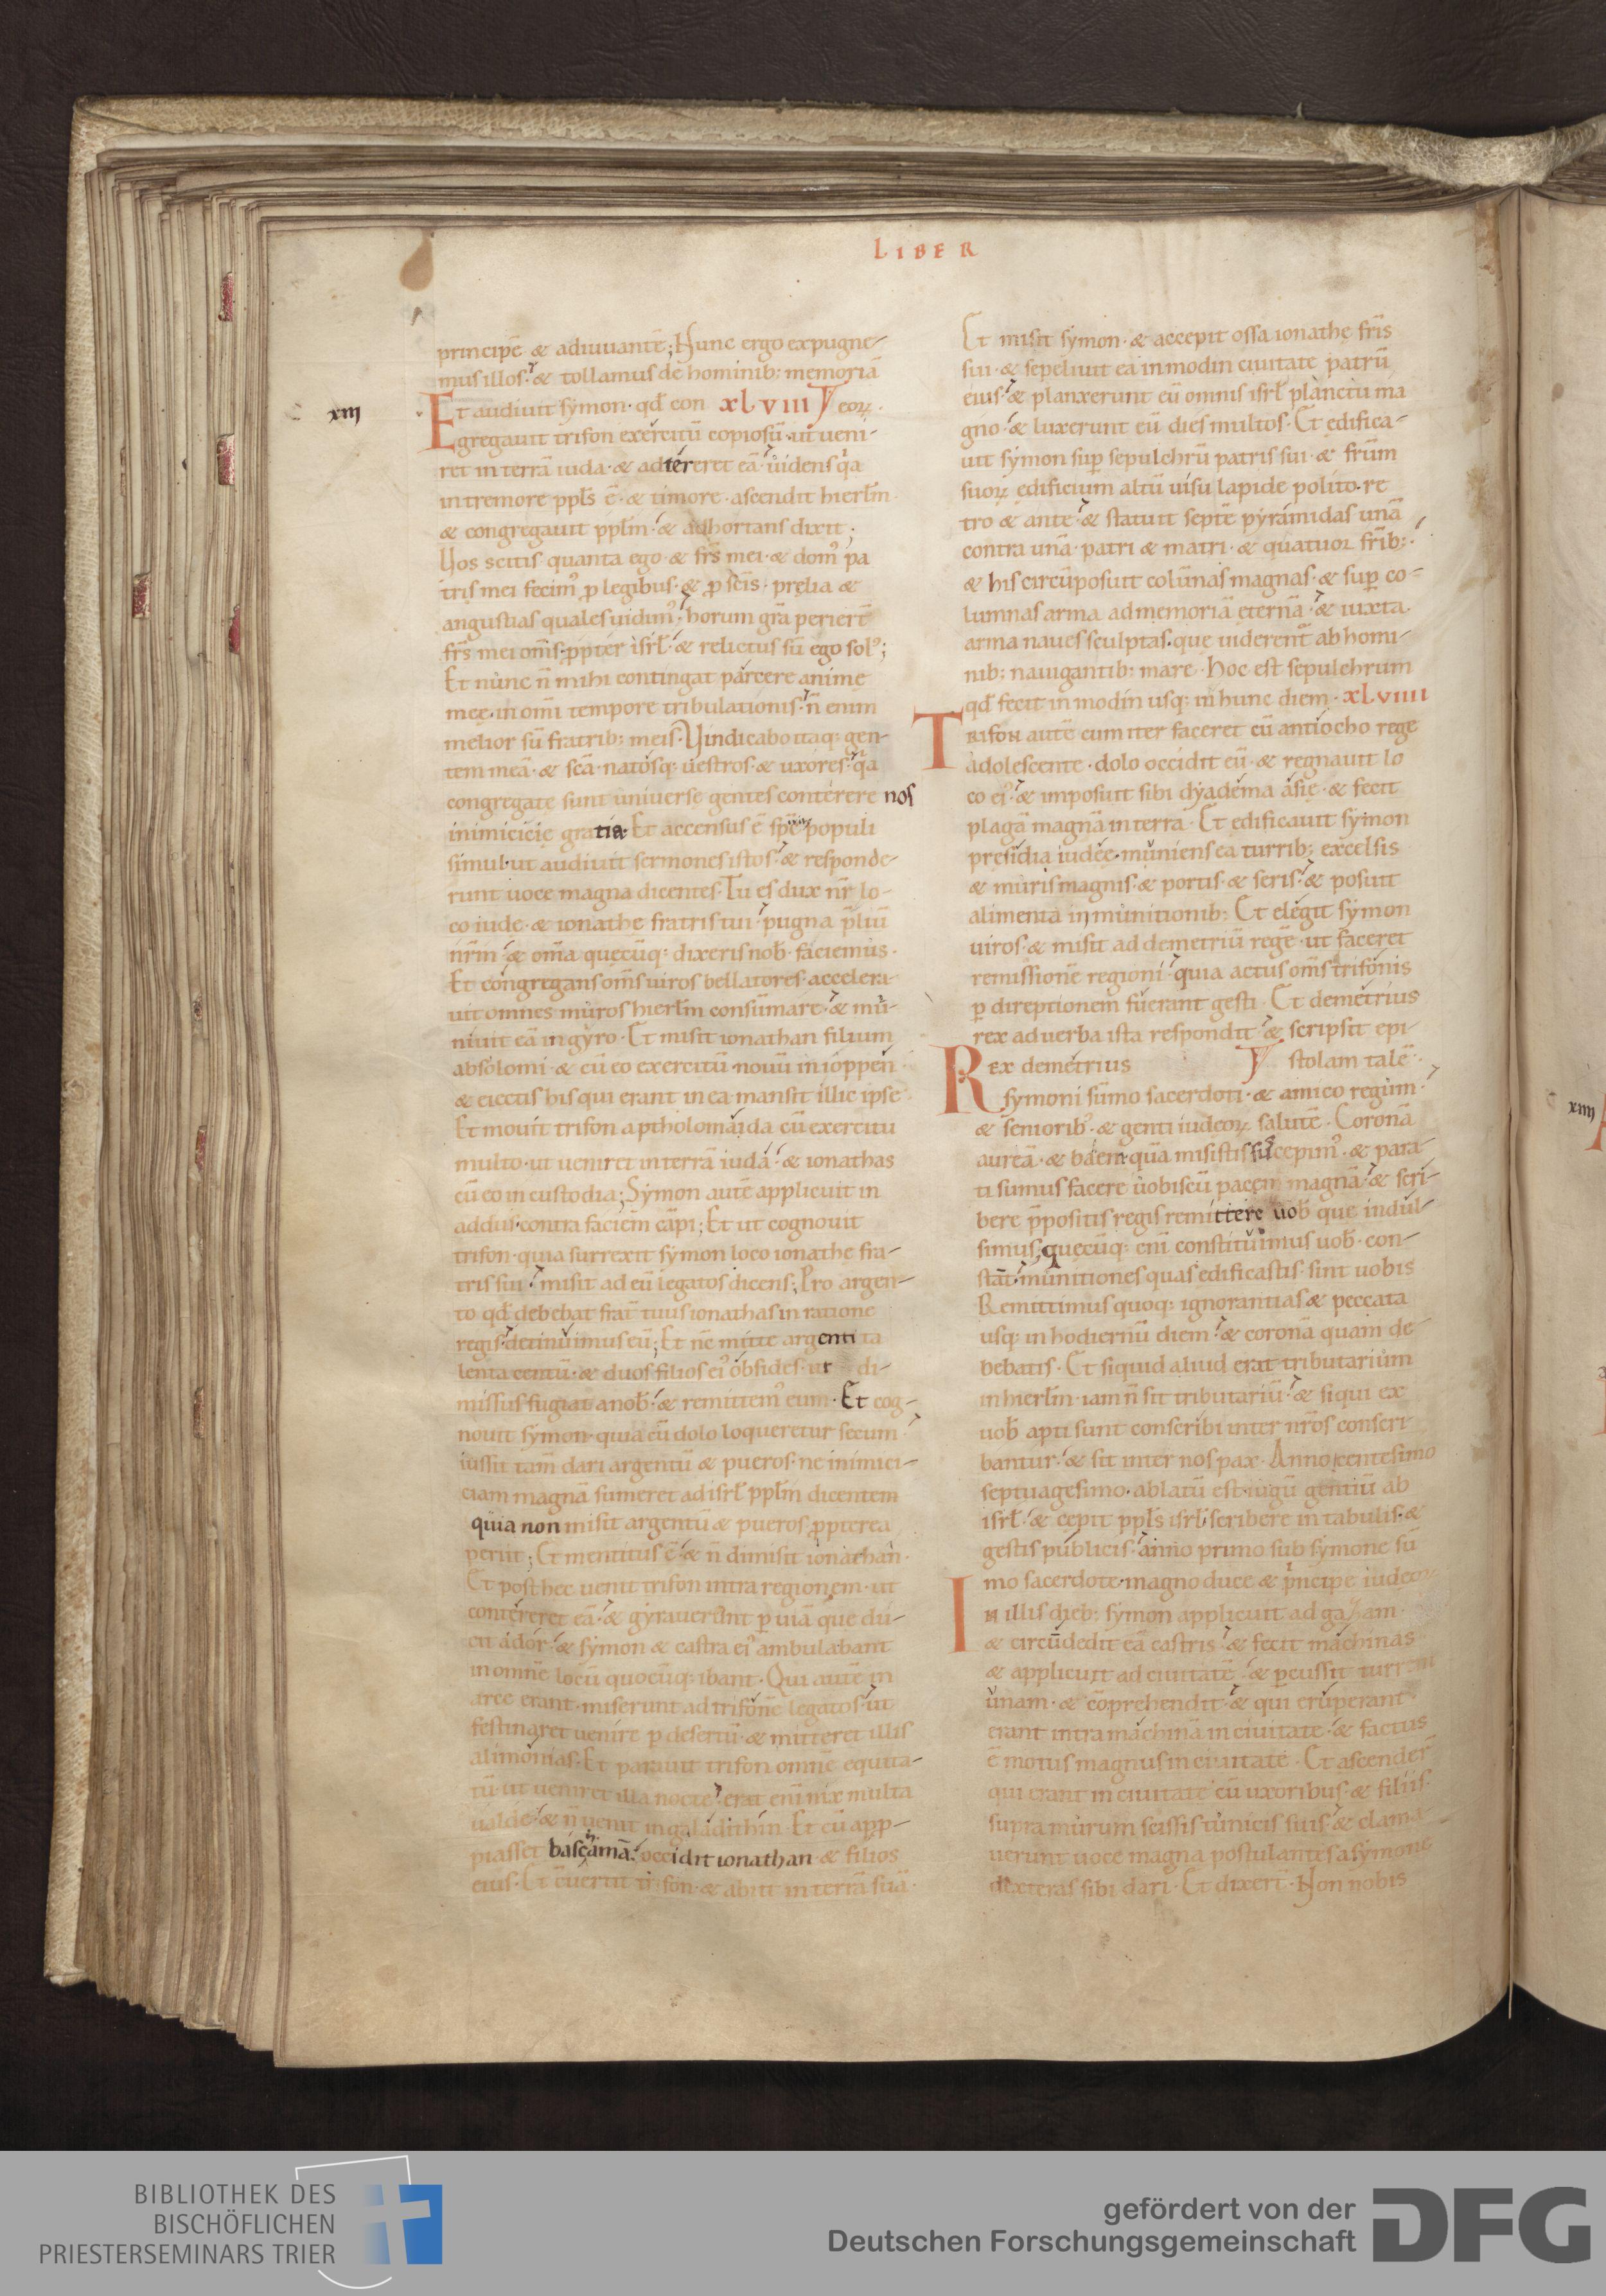 LIBER
principē & adiuuantē; Nunc ergo expugne-
mus illos. & tollamus de hominib: memoriā
xiij
Et audiuit symon. qd̄ con xlviii eoꝝ.
gregauit trifon exercitū copiosū. ut ueni-
ret in terrā iuda. & adtereret eā. uidens qa
in tremore ppl̄s ē. & timore. ascendit hierl̄m
& congregauit ppl̄m. & adhortans dixit;
Uos scitis quanta ego. & frs̄ mei. & dom' pa
tris mei fecim' p legibus. & p sc̄is. prelia &
angustias quales uidim'. horum grā perierē
frs̄ mei om̄s. ppter isrl̄. & relictus sū ego sol';
Et nunc n̄ mihi contingat parcere anime
meę. in om̄i tempore tribulationis. n̄ enim
melior sū fratrib: meis. Uindicabo itaq: gen-
tem meā. & sc̄ā. natosq: uestros. & uxores. qa
congregate sunt uniuerse gentes conterere nos
inimicicię gratia. Et accensus ē sp̄c populi
simul. ut audiuit sermones istos. & responde-
runt uoce magna dicentes. Tu es dux nr̄ lo-
co iude. & ionathe fratris tui. pugna p̄liū
nr̄m. & om̄a quecūq: dixeris nob̄. faciemus.
Et congregans om̄s uiros bellatores. accelera-
uit omnes muros hierl̄m consūmare. & mu-
niuit eā in gyro. Et misit ionathan filium
absolomi. & cū eo exercitū nouū in ioppen
& eiectis his qui erant in ea mansit illic ipse
Et mouit trifon a ptholomaida cū exercitu
multo. ut ueniret in terrā iudā. & ionathas
cū eo in custodia; Symon autē applicuit in
addus. contra faciem cāpi; Et ut cognouit
trifon. quia surrexit symon loco ionathe fra-
tris sui. misit ad eū legatos dicens; Pro argen-
to qd̄ debebat frat̄ tuus ionathas in ratione
regis. detinuimus eū; Et nc̄ mitte argenti ta
lenta centū. & duos filios ei' obsides. ut di-
missus fugiat a nob̄. & remittem' eum. Et cog-
nouit symon. quia cū dolo loqueretur secum
iussit tam̄ dari argentū & pueros. ne inimici-
ciam magnā sumeret ad isrl̄ ppl̄m dicentem
quia non misit argentū & pueros. ppterea
periit; Et mentitus ē. & n̄ dimisit ionathan.
Et post hec uenit trifon intra regionem. ut
contereret eā. & gyrauerunt p uiā que du-
cit ador. & symon & castra ei' ambulabant
in omnē locū quocūq: ibant. Qui autē in
arce erant. miserunt ad trifonē legatos. ut
festinaret uenire p desertū. & mitteret illis
alimonias. Et parauit trifon omnē equita-
tū. ut ueniret illa nocte. erat enī nix multa
ualde. & n̄ uenit in galadithin. Et cū app-
piasset bascamā. occidit ionathan & filios
eius. Et cuertit trifon. & abiit in terrā suā.
Et misit symon. & accepit ossa ionathe fr̄is
sui. & sepeliuit ea in modin ciuitate patrū
eius. & planxerunt eū omnis isrl̄ planctu ma
gno. & luxerunt eū dies multos. Et edifica-
uit symon sup sepulchrū patris sui. & frm̄
suoꝝ edificium altū uisu lapide polito. re
tro & ante. & statuit septē pyramidas unā
contra unā. patri & matri. & quatuor frīb:.
& his circūposuit colūnas magnas. & sup co-
lumnas arma ad memoriā eternā. & iuxta
arma naues sculptas. que uiderent' ab homi-
nib: nauigantib: mare. Hoc est sepulchrum
qd̄ fecit in modin usq: in hunc diem. xlviiii
Trifon autē cum iter faceret cū antiocho rege
adolescente. dolo occidit eū. & regnauit lo
co ei'. & imposuit sibi dyadema asię. & fecit
plagā magnā in terra. Et edificauit symon
presidia iudeę. muniens ea turrib: excelsis
& muris magnis. & portis. & seris. & posuit
alimenta in munitionib: Et elegit symon
uiros. & misit ad demetriū regē. ut faceret
remissionē regioni. quia actus om̄s trifonis
p direptionem fuerant gesti. Et demetrius
rex ad uerba ista respondit. & scripsit epi-
Rex demetrius stolam talē.
symoni sūmo sacerdoti. & amico regum.
& seniorib'. & genti iudeoꝝ salutē. Coronā
aureā. & baen. quā misistis suscepim'. & para-
ti sumus facere uobiscū pacem magnā. & scri-
bere p̄positis regis remittere uob̄ que indul-
simus. quecūq: enī constituimus uob̄. con-
stāt. munitiones quas edificastis. sint uobis
Remittimus quoq: ignorantias & peccata
usq: in hodiernū diem. & coronā quam de-
bebatis. Et siquid aliud erat tributarium
in hierl̄m. iam n̄ sit tributariū. & siqui ex
uob̄ apti sunt conscribi inter nr̄os conscri-
bantur. & sit inter nos pax. Anno centesimo
septuagesimo. ablatū est iugū gentiū ab
isrl̄. & cepit ppl̄s isrl̄ scribere in tabulis. &
gestis publicis. anno primo sub symone sū
mo sacerdote. magno duce & p̄ncipe iudeoꝝ
In illis dieb: symon applicuit ad gazam.
& circūdedit eā castris. & fecit machinas
& applicuit ad ciuitatē. & pcussit turrem
unam. & cōprehendit. & qui eruperant
erant intra machinā in ciuitate. & factus
ē motus magnus in ciuitate. Et ascender̄
qui erant in ciuitate cū uxoribus. & filiis.
supra murum scissis tunicis suis. & clama
uerunt uoce magna postulantes a symone
dexteras sibi dari. Et dixer̄t. Non nobis
xiiij
BIBLIOTHEK DES
BISCHÖFLICHEN
PRIESTERSEMINARS TRIER
gefördert von der
Deutschen Forschungsgemeinschaft
DFG